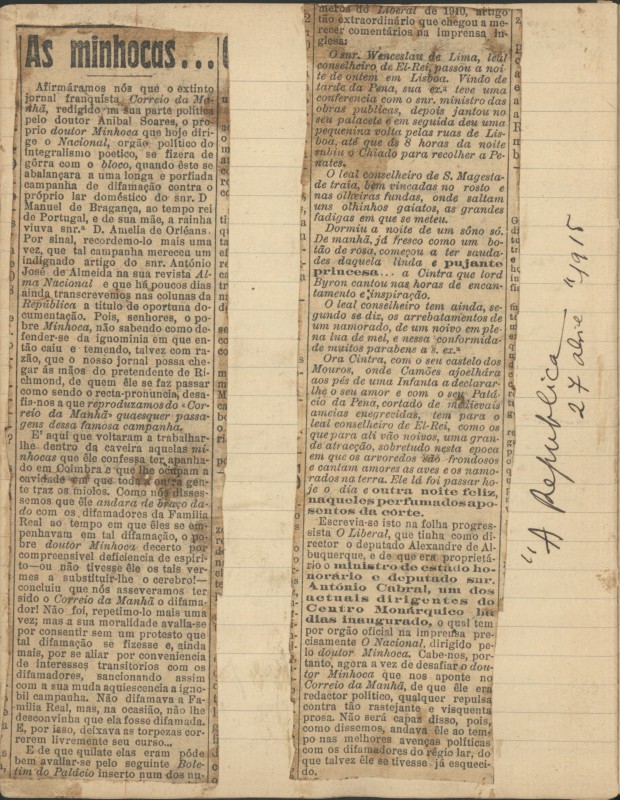 As minhocas...
Afirmáramos nós que o extinto
jornal franquista, Correio da Ma-
nhã, redigido na sua parte política
pelo doutor Anibal Soares, o pro-
prio doutor Minhoca que hoje diri-
ge o Nacional, orgão político do
integralismo poetico, se fizera de
gôrra com o bloco, quando êste se
abalançara a uma longa e porfiada
campanha de difamação contra o
próprio lar doméstico do snr. D
Manuel de Bragança, ao tempo rei
de Portugal, e de sua mãe, a rainha
viuva snr.ª D. Amelia de Orléans.
Por sinal, recordemo-lo mais uma
vez, que tal campanha mereceu um
indignado artigo do snr. António
José de Almeida na sua revista Al-
ma Nacional e que há poucos dias
ainda transcrevemos nas colunas da
República a titulo de oportuna do-
cumentação. Pois, senhores, o po-
bre Minhoca, não sabendo como de-
fender-se da ignominia em que en-
tão caiu e temendo, talvez com ra-
zão, que o nosso jornal possa che-
gar ás mãos do pretendente de Ri-
chmond, de quem êle se faz passar
como sendo o recta-pronuncia, desa-
fia-nos a que reproduzamos do «Cor-
reio da Manhã» quaesquer passa-
gens dessa famosa campanha.
E' aqui que voltaram a trabalhar-
lhe dentro da caveira aquelas mi-
nhocas que êle confessa ter apanha-
do em Coimbra e que lhe ocupam a
cavidade em que toda a outra gen-
te traz os miolos. Como nós disses-
semos que êle andara de braço da-
do com os difamadores da Familia
Real ao tempo em que êles se em-
penhavam em tal difamação, o po-
bre doutor Minhoca decerto por
compreensivel deficiencia de espiri-
to—ou não tivesse êle os tais ver-
mes a substituir-lhe o cerebro!—
concluiu que nós asseveramos ter
sido o Correio da Manhã o difama-
dor! Não foi, repetimo-lo mais uma
vez; mas a sua moralidade avalia-se
por consentir sem um protesto que
tal difamação se fizesse e, ainda
mais, por se aliar por conveniencia
de interesses transitorios com os
difamadores, sancionando assim
com a sua muda aquiescencia a igno-
bil campanha. Não difamava a Fa-
milia Real, mas, na ocasião, não lhe
desconvinha que ela fosse difamada.
E, por isso, deixava as torpezas cor-
rerem livremente seu curso...
E de que quilate elas eram póde
bem avaliar-se pelo seguinte Bole-
tim do Palácio inserto num dos nu-
meros do Liberal de 1910, artigo
tão extraordinário que chegou a me-
recer comentários na Imprensa In-
glesa:
O snr. Wenceslau de Lima, leal
conselheiro de El-Rei, passou a noi-
te de ontem em Lisboa. Vindo de
tarde da Pena, sua ex.ª teve uma
conferencia com o snr. ministro das
obras publicas, depois jantou no
seu palacete e em seguida deu uma
pequenina volta pelas ruas de Lis-
boa, até que ás 8 horas da noite
subiu o Chiado para recolher a Pe-
nates.
O leal conselheiro de S. Magesta-
de traia, bem vincadas no rosto e
nas olheiras fundas, onde saltam
uns olhinhos gaiatos, as grandes
fadigas em que se meteu.
Dormiu a noite de um sôno só.
De manhã, já fresco como um bo-
tão de rosa, começou a ter sauda-
des daquela linda e pujante
princesa... a Cintra que lord
Byron cantou nas horas de encan-
tamento e inspiração.
O leal conselheiro tem ainda, se-
gundo se diz, os arrebatamentos de
um namorado, de um noivo em ple-
na lua de mel, e nessa conformida-
de muitos parabens a s. ex.ª
Ora Cintra, com o seu castelo dos
Mouros, onde Camões ajoelhára
aos pés de uma Infanta a declarar-
lhe o seu amor e com o seu Palá-
cio da Pena, cortado de medievais
ameias enegrecidas, tem para o
leal conselheiro de El-Rei, como os
que para ali vão noivos, uma gran-
de atracção, sobretudo nesta epoca
em que os arvoredos são frondosos
e cantam amores as aves e os namo-
rados na terra. Ele lá foi passar ho-
je o dia e outra noite feliz,
naqueles perfumados apo-
sentos da córte.
Escrevia-se isto na folha progres-
sista O Liberal, que tinha como di-
rector o deputado Alexandre de Al-
buquerque, e de que era proprietá-
rio o ministro de estado ho-
norário e deputado snr.
António Cabral, um dos
actuais dirigentes do
Centro Monárquico ha
dias inaugurado, o qual tem
por orgão oficial na imprensa pre-
cisamente O Nacional, dirigido pe-
lo doutor Minhoca. Cabe-nos, por-
tanto, agora a vez de desafiar o dou-
tor Minhoca que nos aponte no
Correio da Manhã, de que êle era
redactor politico, qualquer repulsa
contra tão rastejante e visquenta
prosa. Não será capaz disso, pois,
como dissemos, andava êle ao tem-
po nas melhores avenças políticas
com os difamadores do régio lar, do
que talvez êle se tivesse já esqueci-
do.
"A Republica"
27 abril 1915